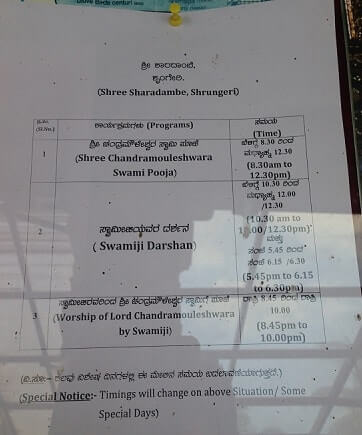 Love Birds centuri
ಶ್ರೀ ಶಾರದಾಂಬೆ,
ಶೃಂಗೇರಿ.
(Shree Sharadambe, Shrungeri)
ಕ್ರ.ಸಂ.
(Sl.No.)
ಕಾರ್ಯಕ್ರಮಗಳು (Programs)
ಸಮಯ
(Time)
1
ಶ್ರೀ ಚಂದ್ರಮೌಳೇಶ್ವರ ಸ್ವಾಮಿ ಪೂಜೆ
(Shree Chandramouleshwara
Swami Pooja)
ಬೆಳಗ್ಗೆ 8.30 ರಿಂದ
ಮಧ್ಯಾಹ್ನ 12.30
(8.30am to
12.30pm)
2
ಸ್ವಾಮೀಜಿಯವರ ದರ್ಶನ
( Swamiji Darshan)
ಬೆಳಗ್ಗೆ 10.30 ರಿಂದ
ಮಧ್ಯಾಹ್ನ 12.00
/12.30
(10.30 am to
12.00/12.30pm)
ಮತ್ತು
ಸಂಜೆ 5.45 ರಿಂದ
ಸಂಜೆ 6.15 /6.30
(5.45pm to 6.15
to 6.30pm)
3
ಸ್ವಾಮೀಜಿಯವರಿಂದ ಶ್ರೀ ಚಂದ್ರಮೌಳೇಶ್ವರ ಸ್ವಾಮಿಗೆ ಪೂಜೆ
(Worship of Lord Chandramouleshwara
by Swamiji)
ರಾತ್ರಿ 8.45 ರಿಂದ ರಾತ್ರಿ
10.00
(8.45pm to
10.00pm)
(ವಿ.ಸೂ:- ಕೆಲವು ವಿಶೇಷ ದಿನಗಳಲ್ಲಿ ಈ ಮೇಲಿನ ಸಮಯ ಬದಲಾವಣೆಯಾಗುತ್ತದೆ.)
(Special Notice:- Timings will change on above Situation/ Some
Special Days)